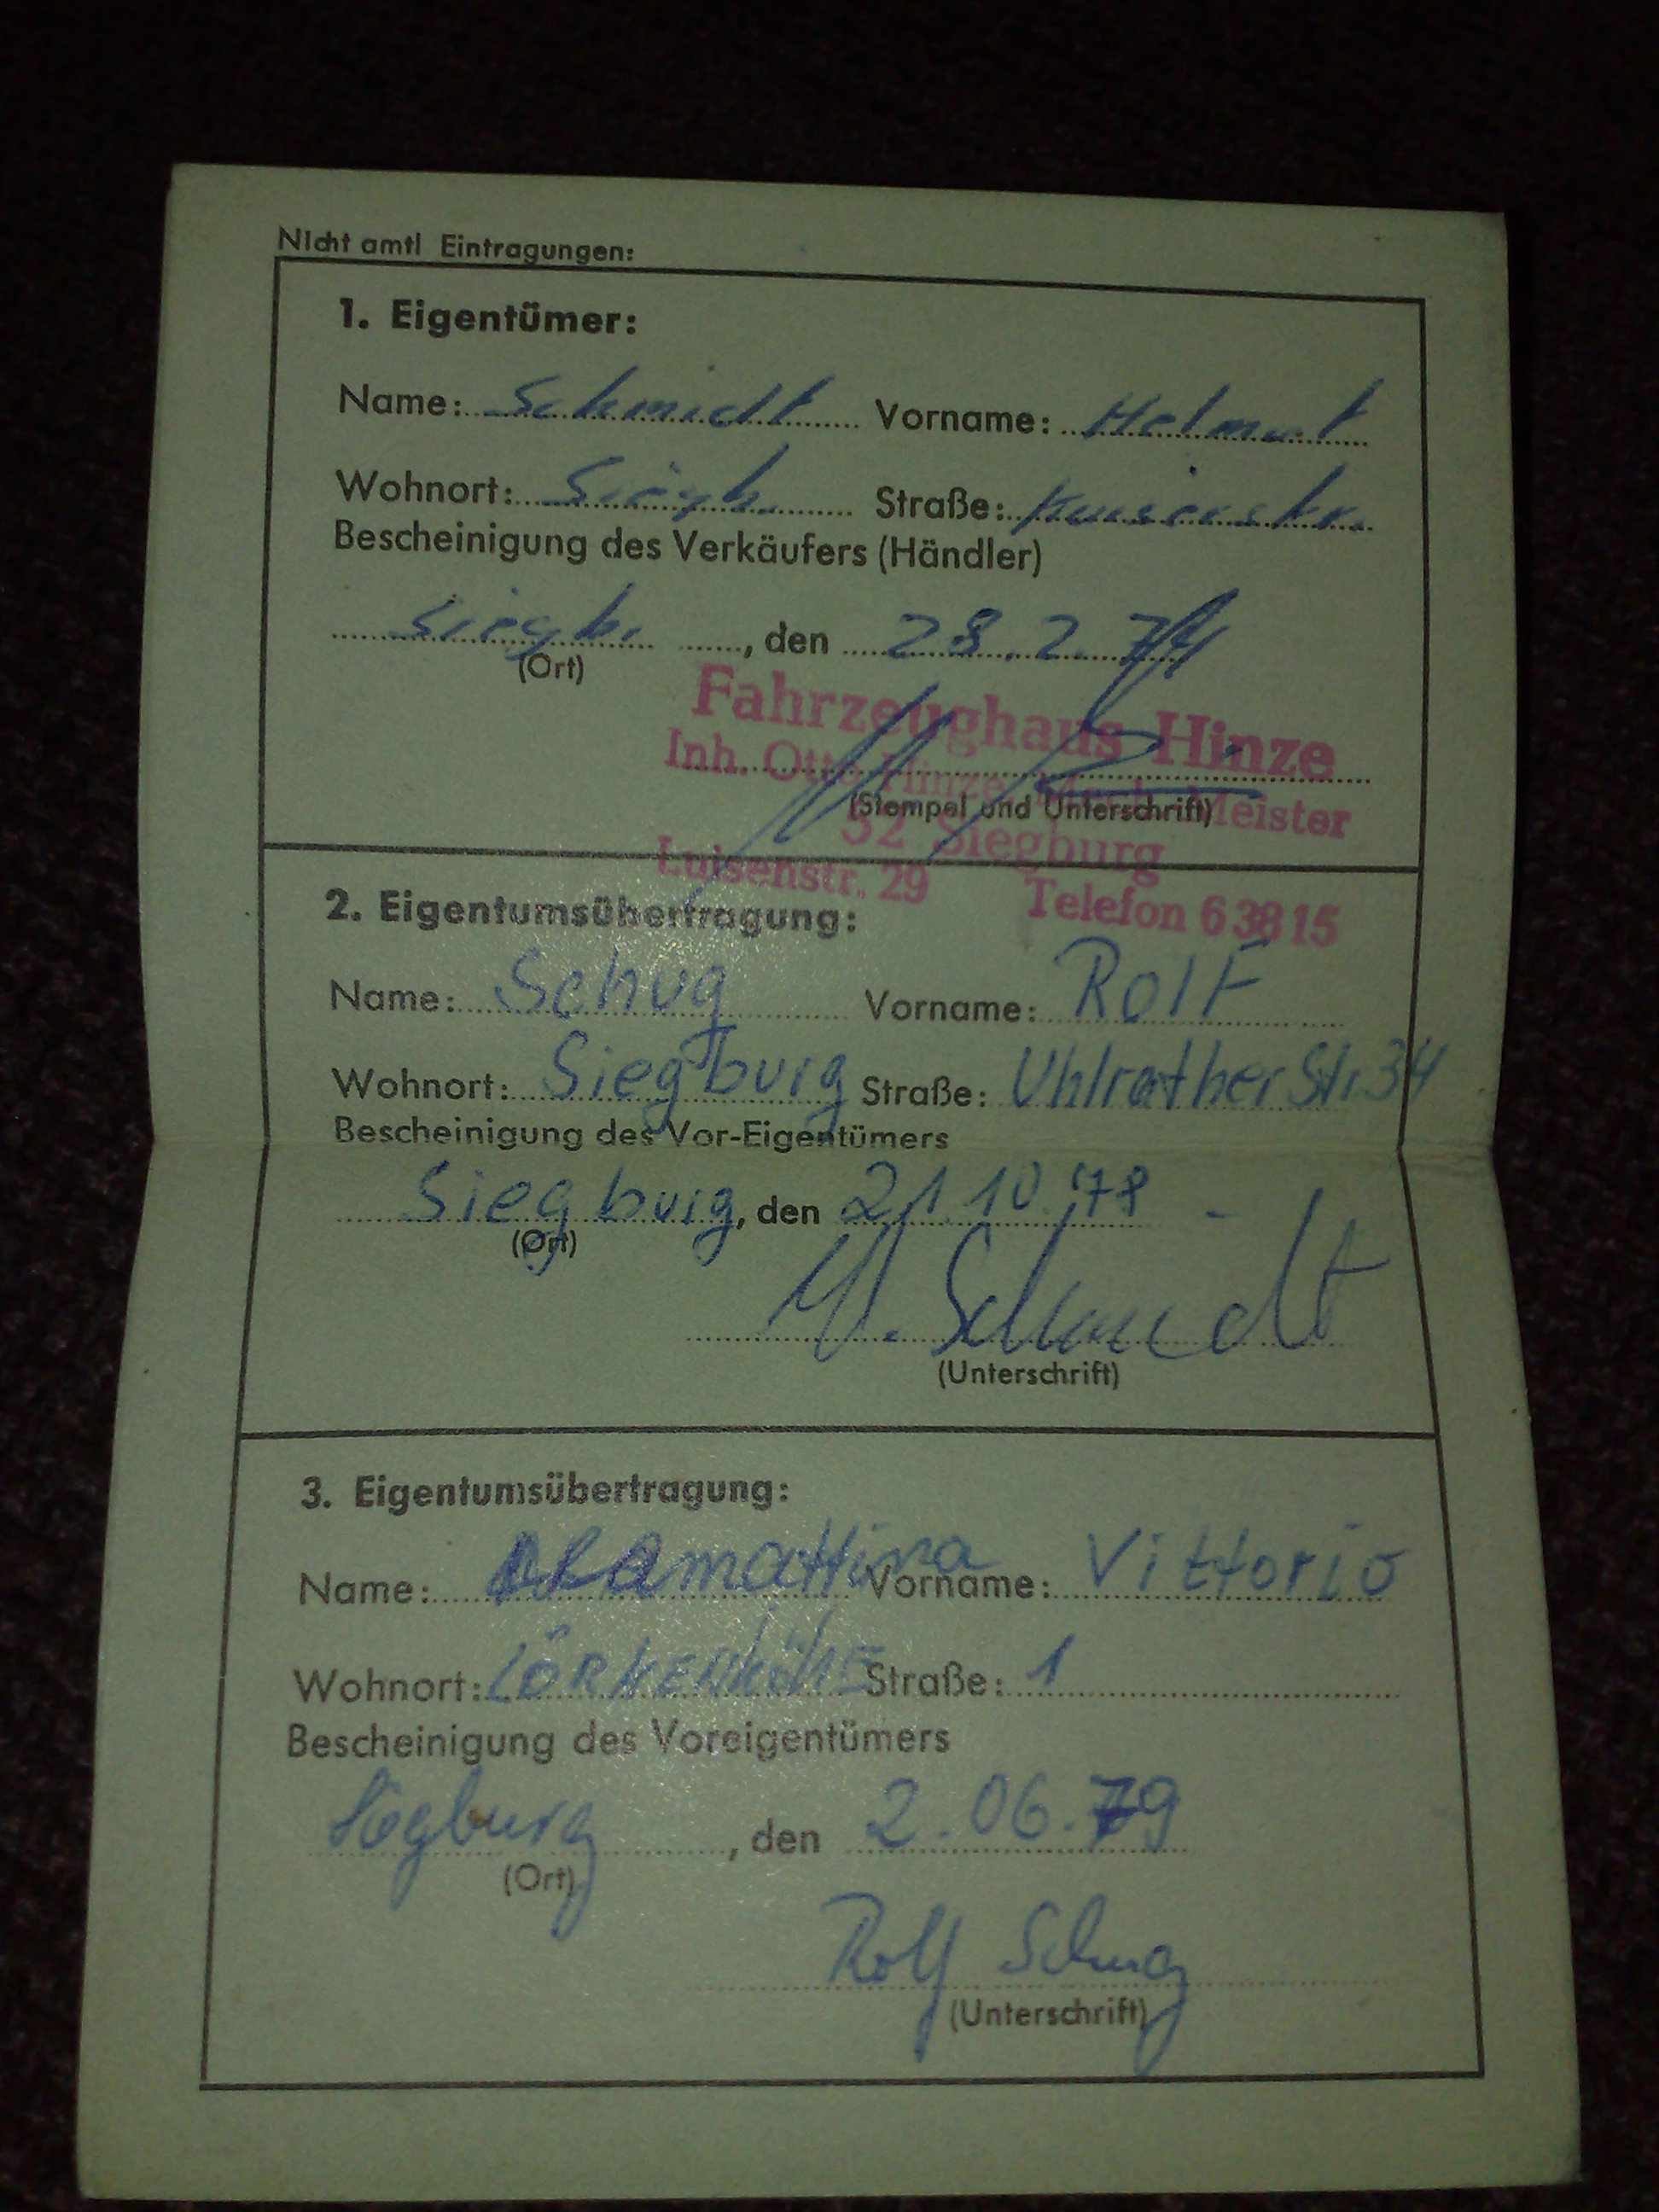 Nicht amtl Eintragungen:
1. Eigentümer:
Name: Schmidt Vorname: Helmut
Wohnort: Siegb. Straße: Kaiserstr.
Bescheinigung des Verkäufers (Händler)
Siegb. , den 28.2.74
(Ort)
Fahrzeughaus Hinze
Inh. Otto Hinze, Mech. Meister
(Stempel und Unterschrift)
52 Siegburg
Luisenstr. 29 Telefon 63815
2. Eigentumsübertragung:
Name: Schug Vorname: Rolf
Wohnort: Siegburg Straße: Uhlrather Str. 34
Bescheinigung des Vor-Eigentümers
Siegburg, den 21.10.'78
(Ort)
H. Schmidt
(Unterschrift)
3. Eigentumsübertragung:
Name: Vorname: Vittorio
Wohnort: Straße: 1
Bescheinigung des Voreigentümers
Siegburg , den 2.06.79
(Ort)
Rolf Schug
(Unterschrift)